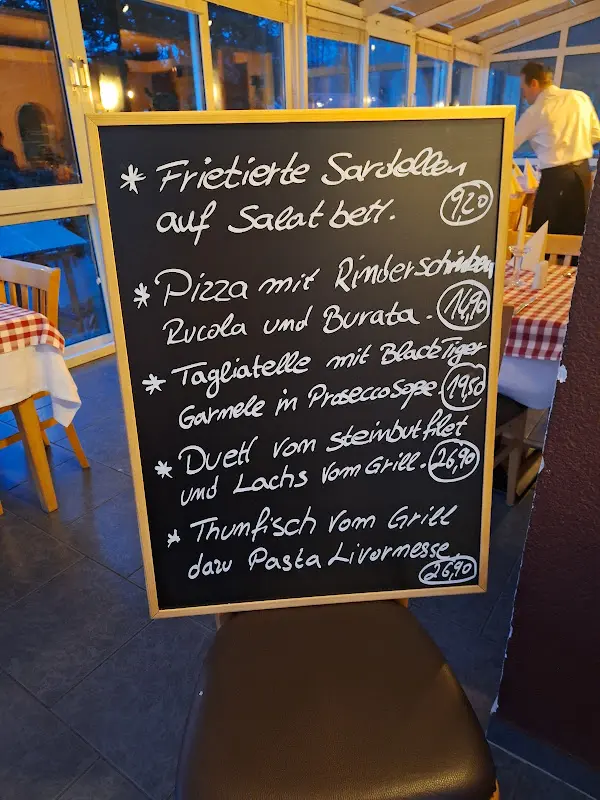 * Frietierte Sardellen
auf Salatbett. 9,20
* Pizza mit Rinderschinken
Rucola und Burata. 14,90
* Tagliatelle mit Black Tiger
Garnele in Proseccosoße 19,50
* Duett vom Steinbutfilet
und Lachs vom Grill. 26,90
* Thumfisch vom Grill
dazu Pasta Livormesse. 26,90